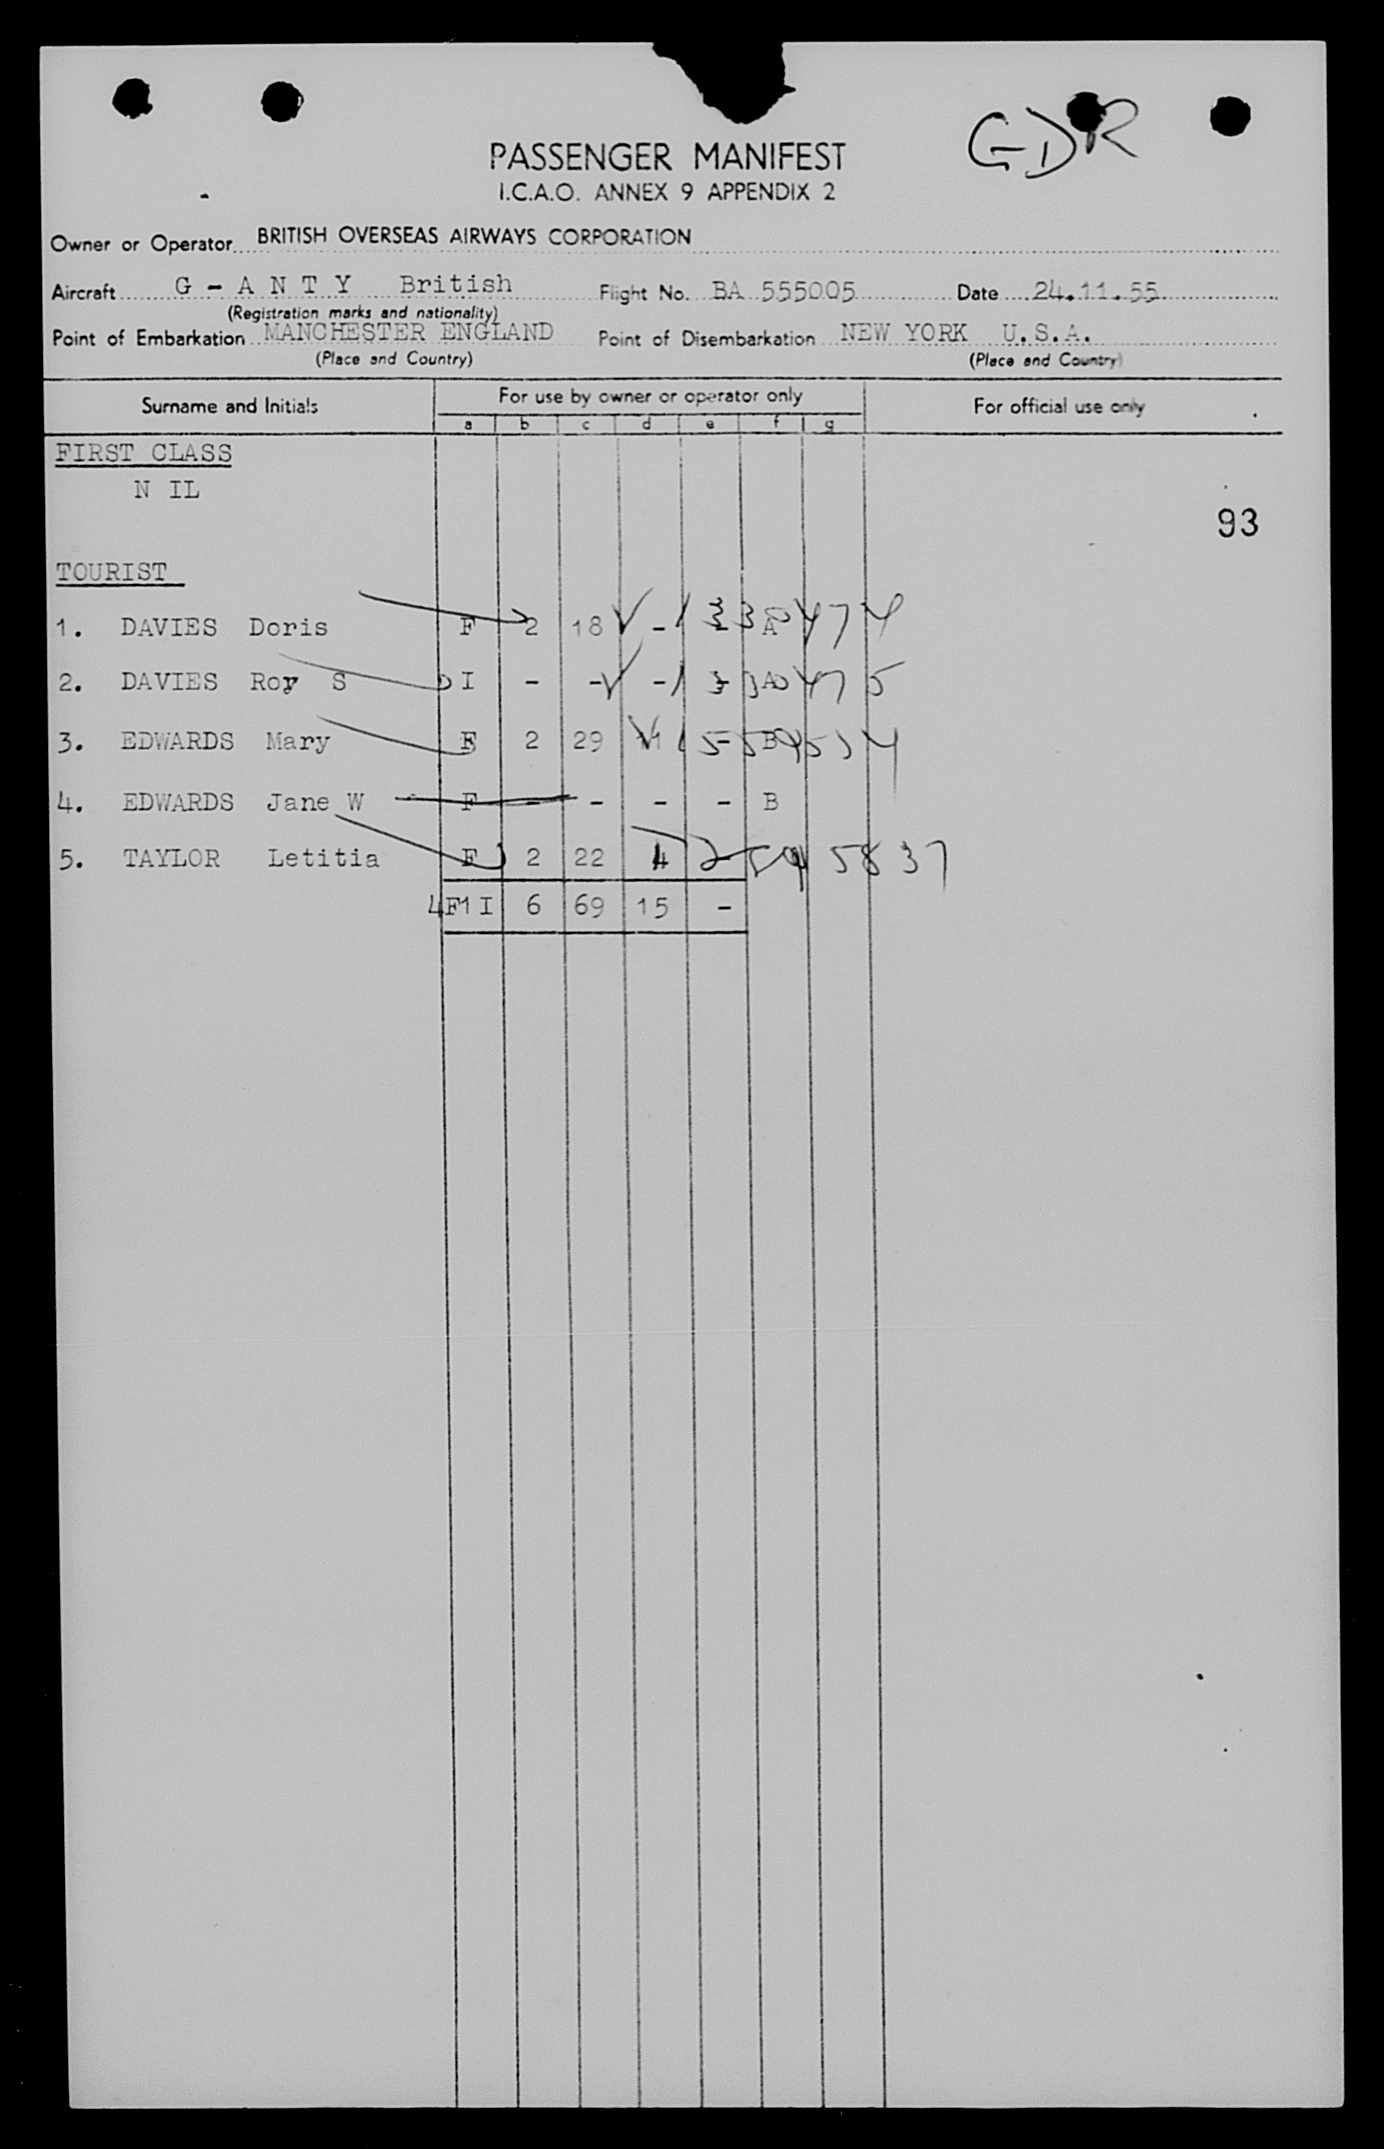 GDR
PASSENGER MANIFEST
I.C.A.O. ANNEX 9 APPENDIX 2
Owner or Operator BRITISH OVERSEAS AIRWAYS CORPORATION
Aircraft G - A N T Y British Flight No. BA 555005 Date 24.11.55
(Registration marks and nationality)
Point of Embarkation MANCHESTER ENGLAND Point of Disembarkation NEW YORK U.S.A.
(Place and Country) (Place and Country)
Surname and Initials For use by owner or operator only For official use only
a b c d e f g
FIRST CLASS
N IL
93
TOURIST
1. DAVIES Doris F 2 18 - - A
2. DAVIES Roy S I - - - - A
3. EDWARDS Mary F 2 29 11 - B
4. EDWARDS Jane W F - - - - B
5. TAYLOR Letitia F 2 22 4 - 5837
4F1I 6 69 15 -